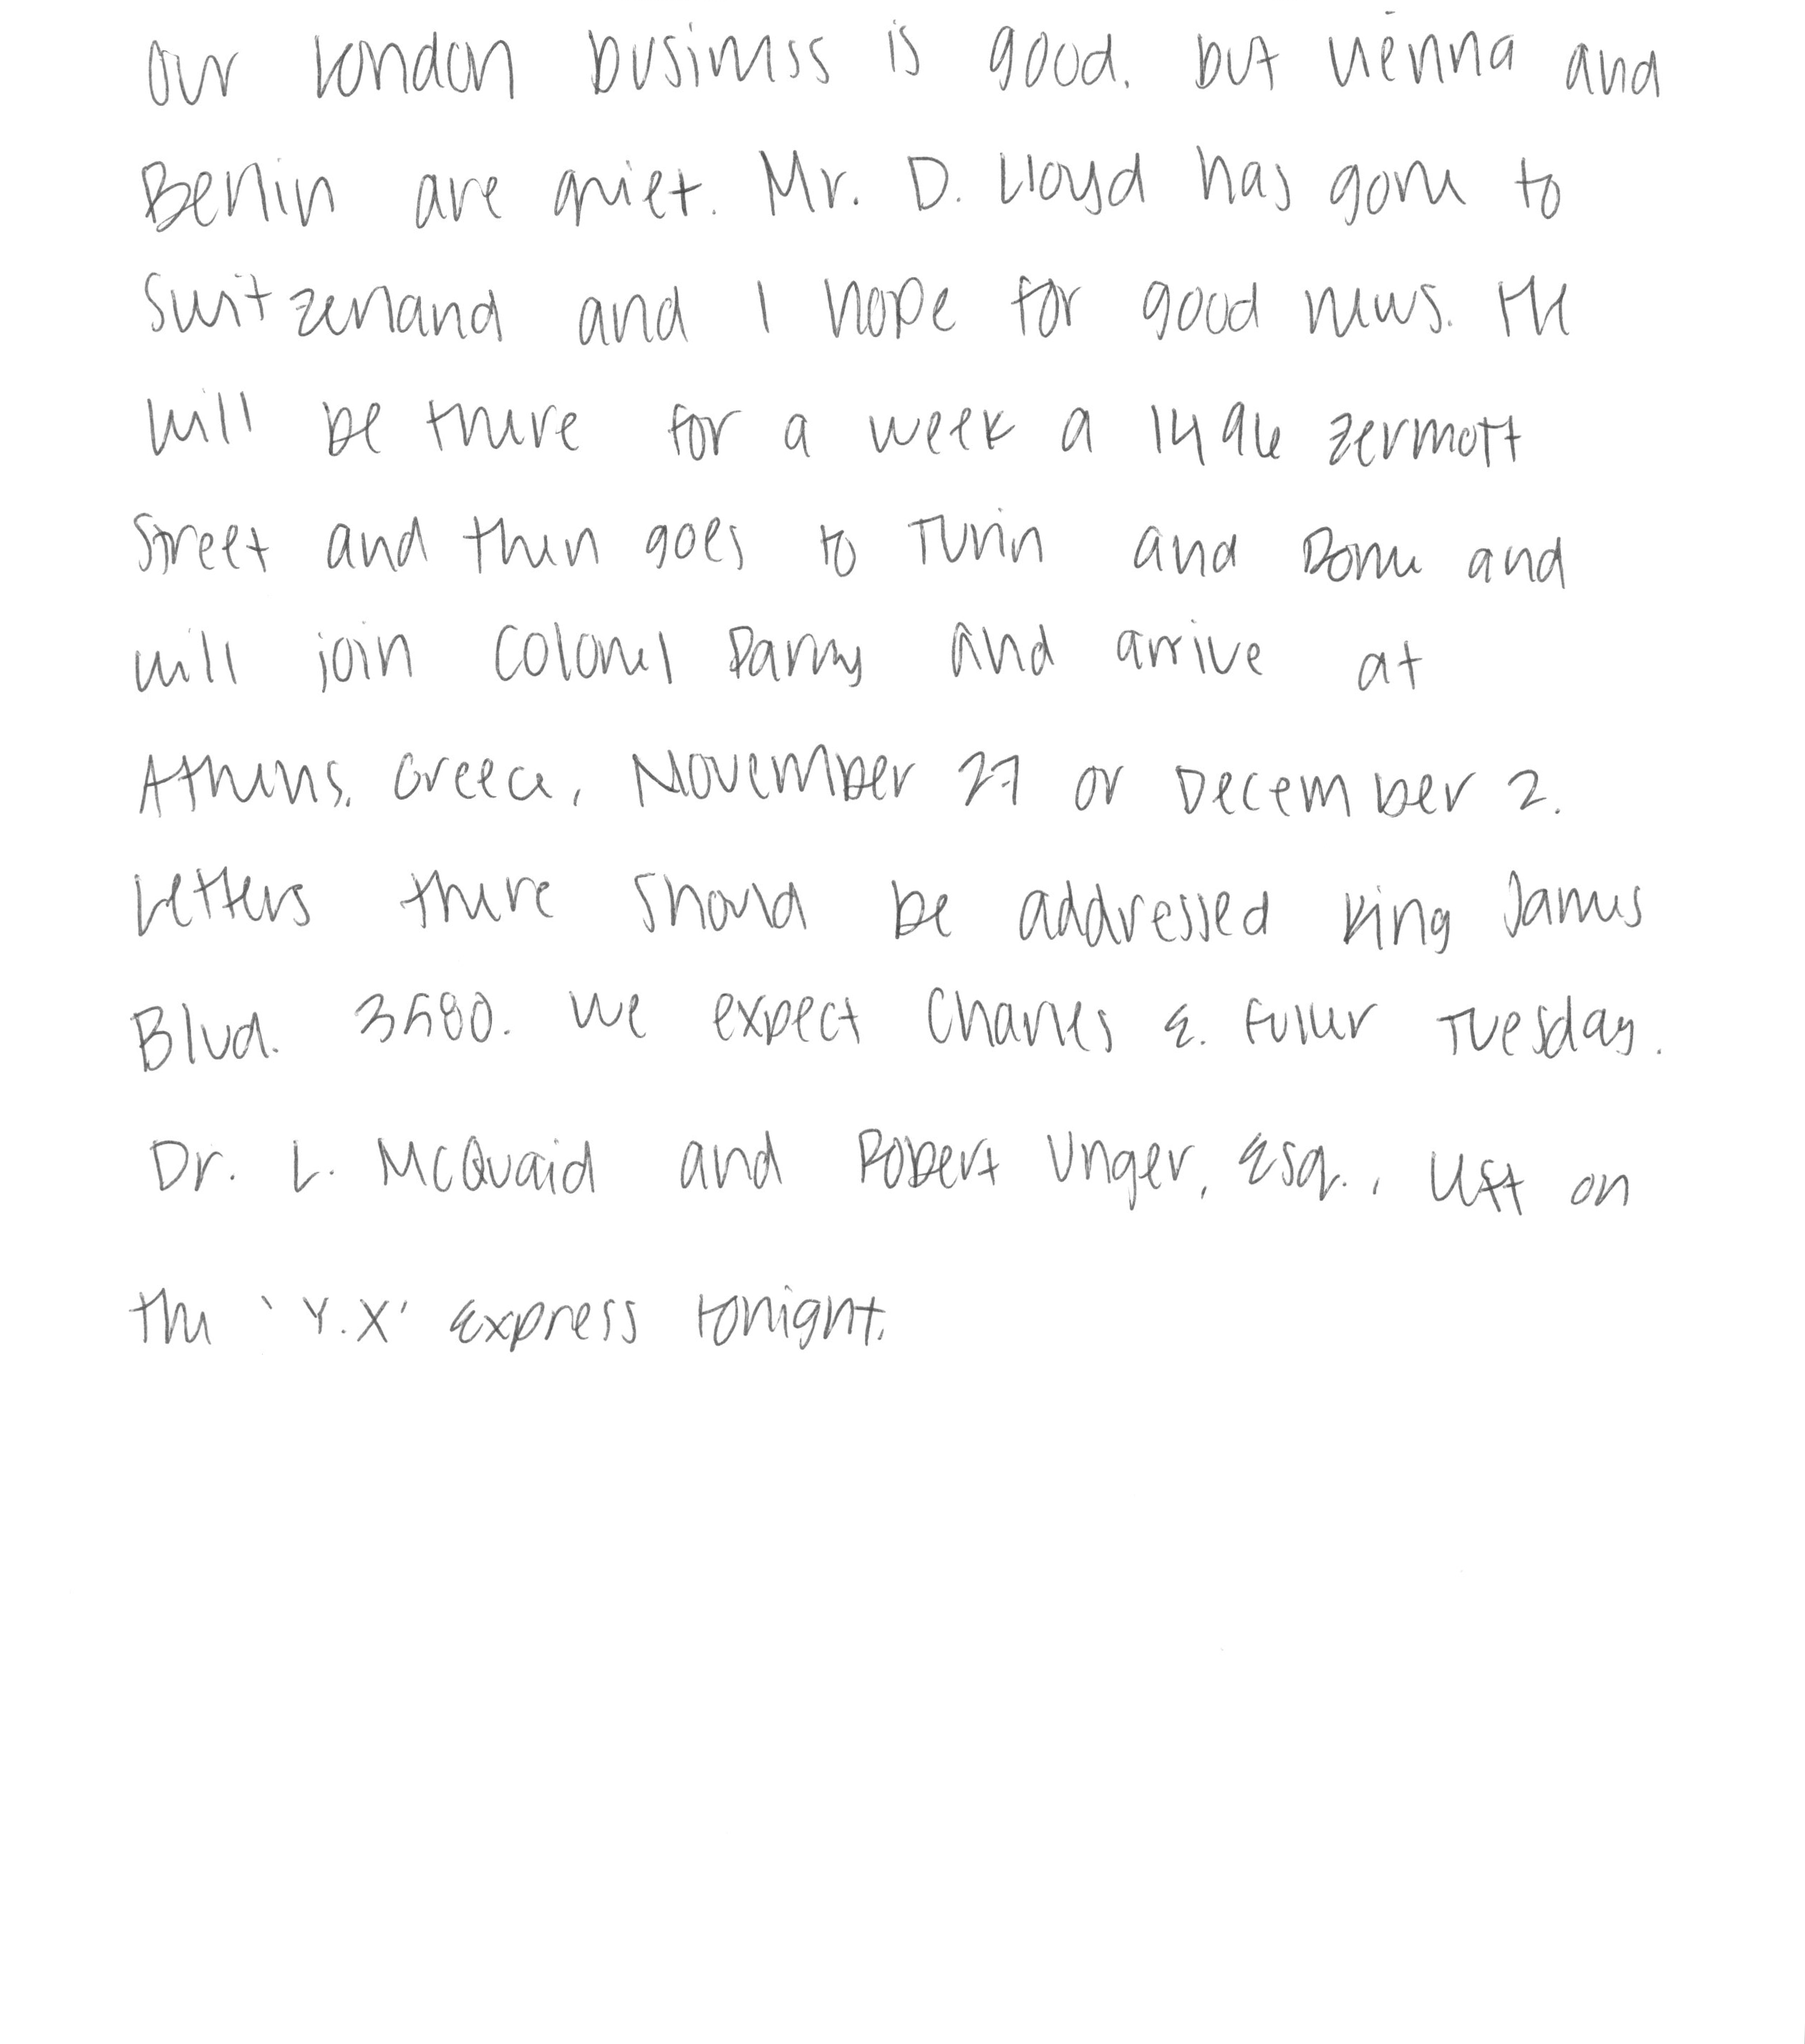 Our London business is good, but Vienna and
Berlin are quiet. Mr. D. Lloyd has gone to
Switzerland and I hope for good news. He
will be there for a week a 1496 Zermott
Street and then goes to Turin and Rome and
will join Colonel Parry and arrive at
Athens, Greece, November 27 or December 2.
Letters there should be addressed King James
Blvd. 3580. We expect Charles E. Fuller Tuesday.
Dr. L. McQuaid and Robert Unger, Esq., left on
the 'Y.X' Express tonight.